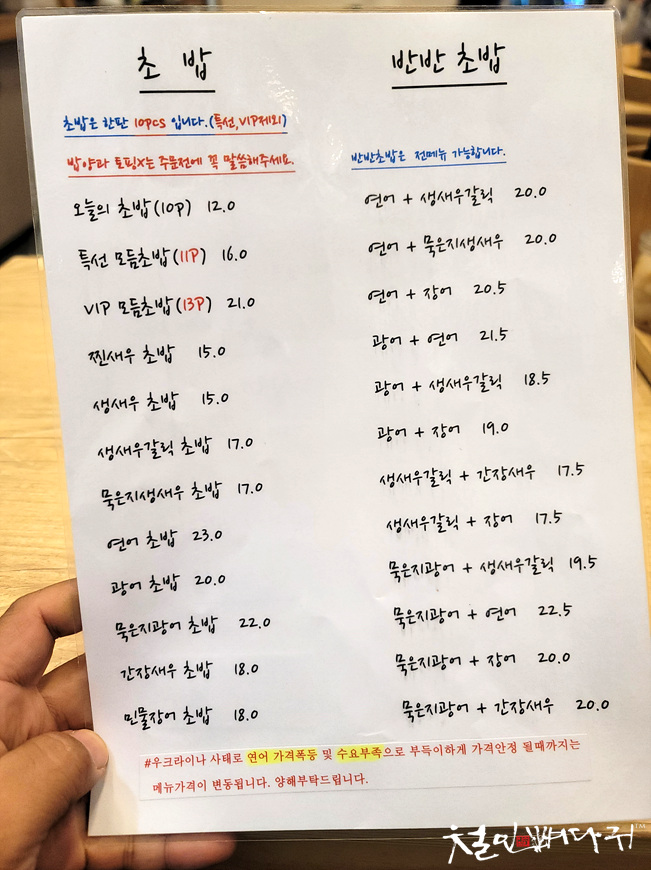 초밥
초밥은 한판 10pcs 입니다.(특선,VIP제외)
밥양과 토핑X는 주문전에 꼭 말씀해주세요.
오늘의 초밥(10P) 12.0
특선 모듬초밥(11P) 16.0
VIP 모듬초밥(13P) 21.0
찐새우 초밥 15.0
생새우 초밥 15.0
생새우갈릭 초밥 17.0
묵은지생새우 초밥 17.0
연어 초밥 23.0
광어 초밥 20.0
묵은지광어 초밥 22.0
간장새우 초밥 18.0
민물장어 초밥 18.0
반반 초밥
반반초밥은 전메뉴 가능합니다.
연어 + 생새우갈릭 20.0
연어 + 묵은지생새우 20.0
연어 + 장어 20.5
광어 + 연어 21.5
광어 + 생새우갈릭 18.5
광어 + 장어 19.0
생새우갈릭 + 간장새우 17.5
생새우갈릭 + 장어 17.5
묵은지광어 + 생새우갈릭 19.5
묵은지광어 + 연어 22.5
묵은지광어 + 장어 20.0
묵은지광어 + 간장새우 20.0
#우크라이나 사태로 연어 가격폭등 및 수요부족으로 부득이하게 가격안정 될때까지는
메뉴가격이 변동됩니다. 양해부탁드립니다.